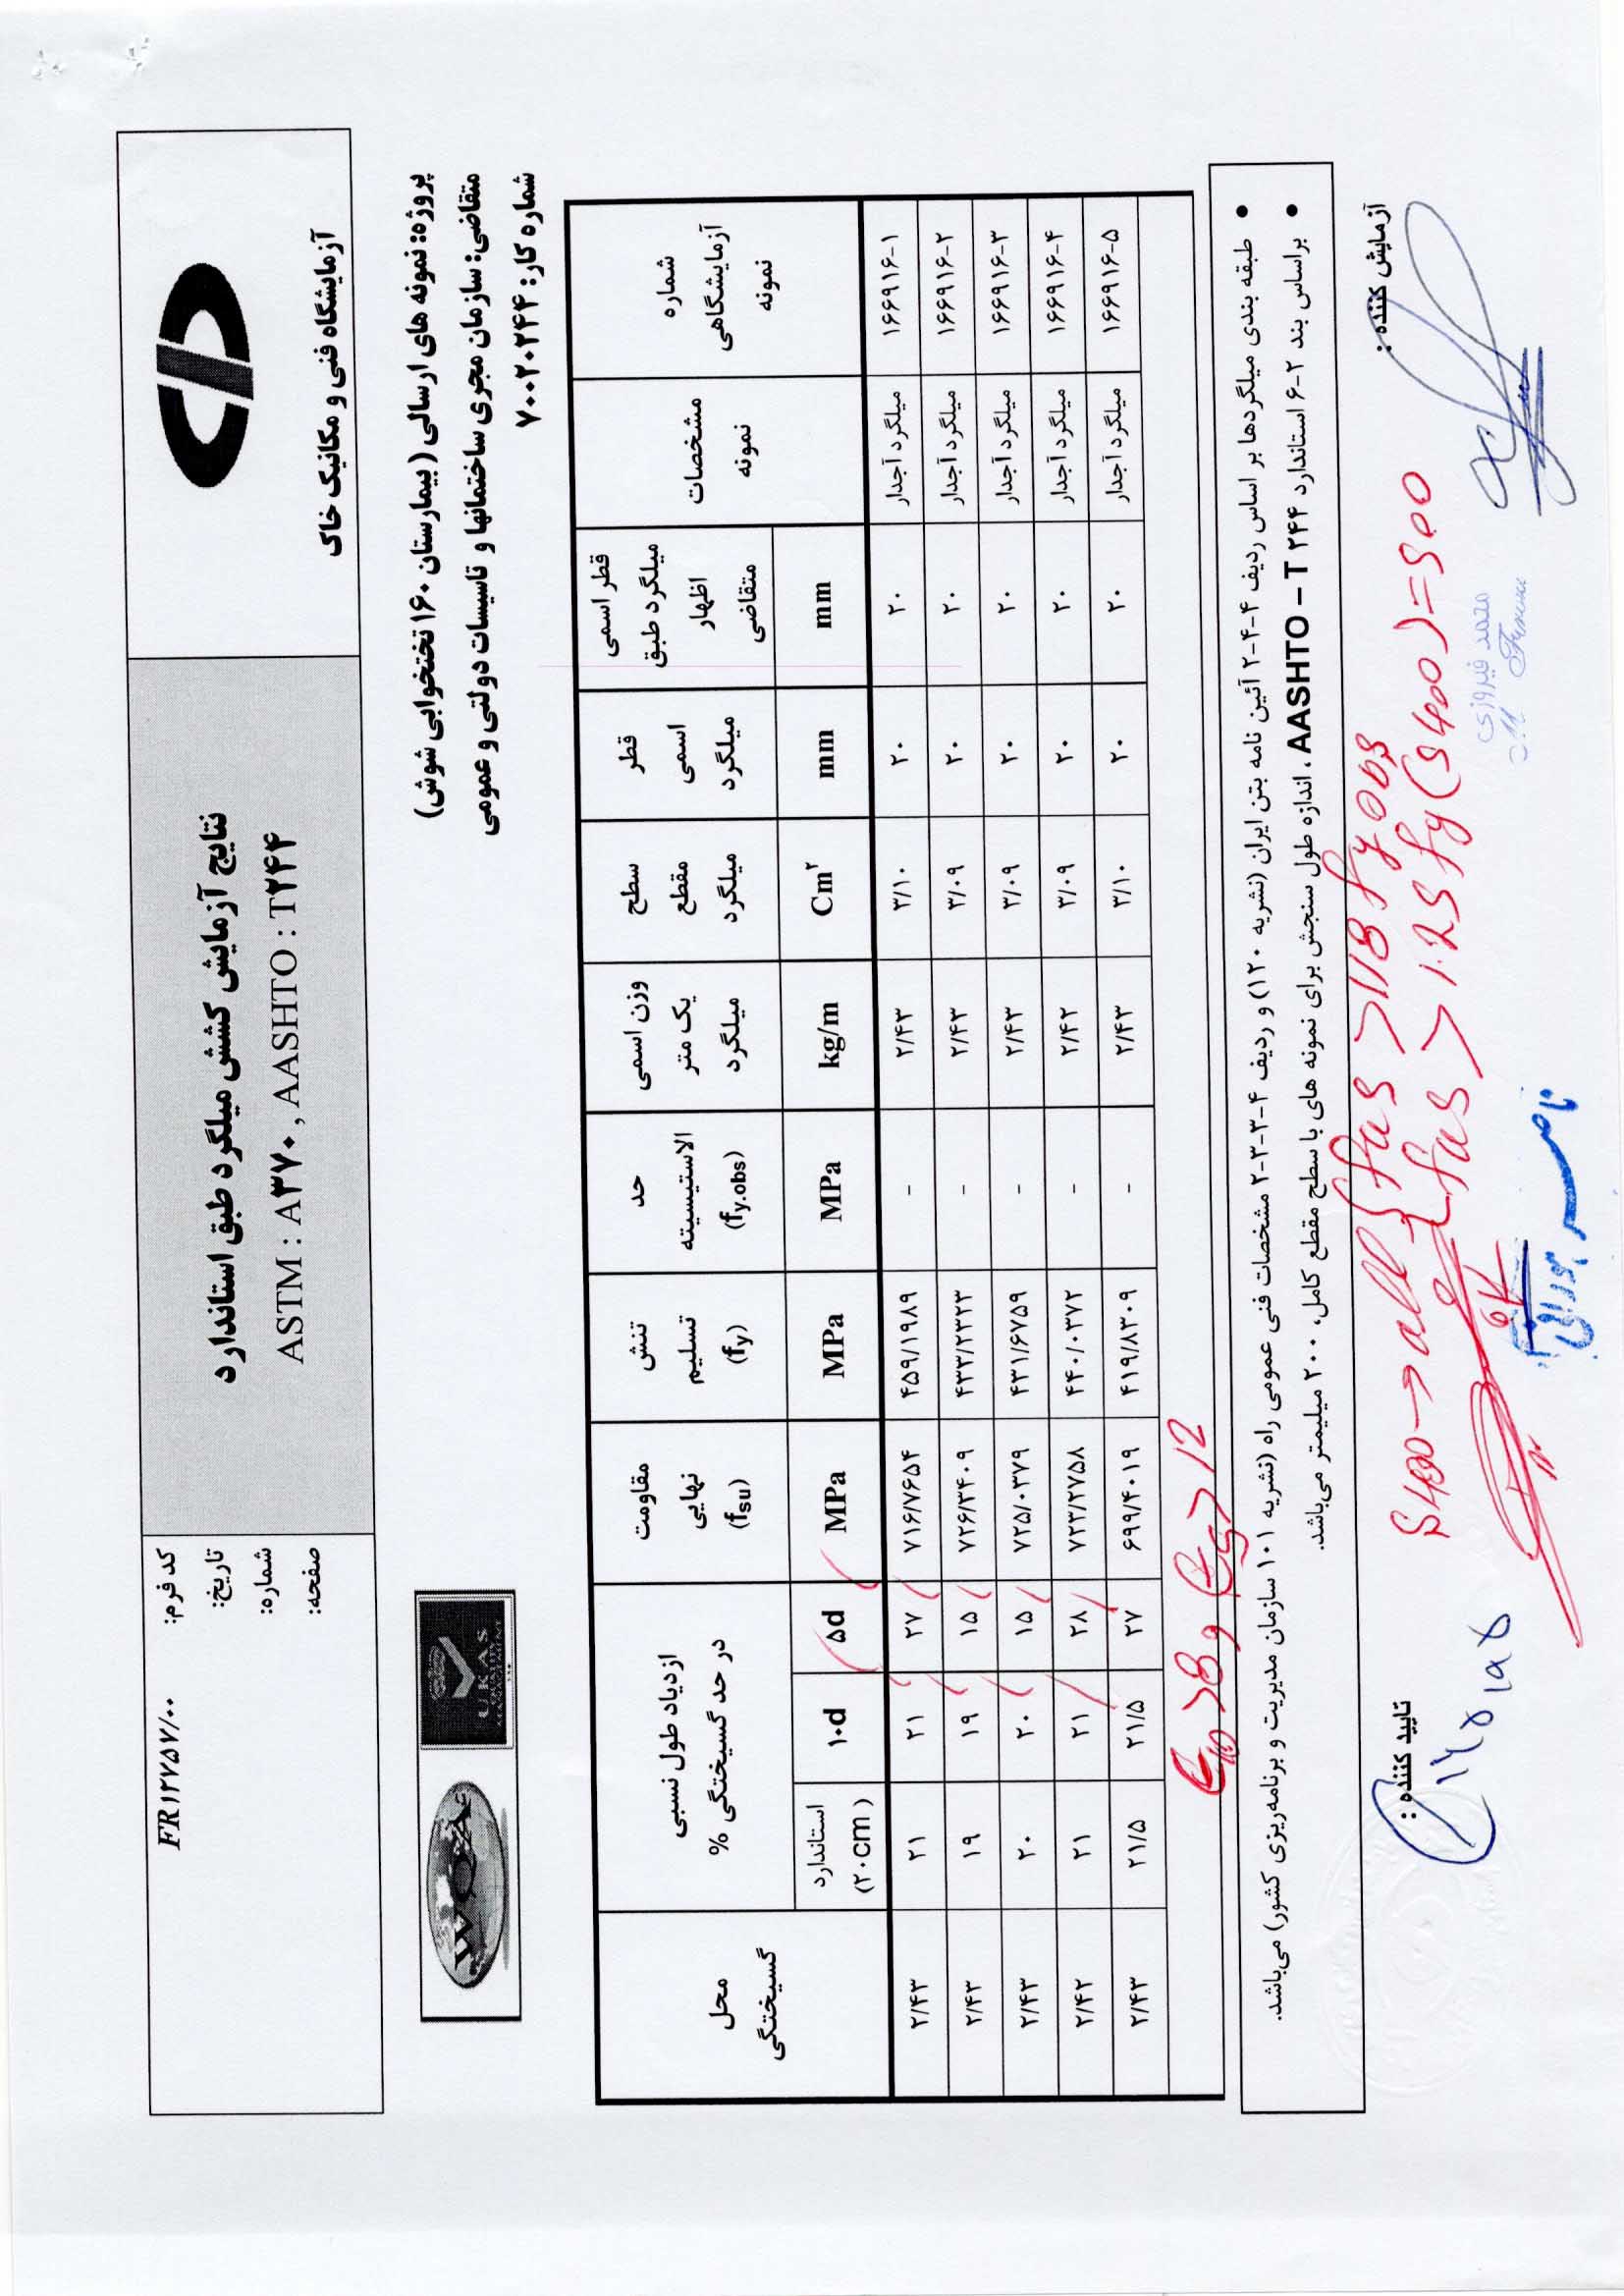 آزمایشگاه فنی و مکانیک خاک
نتایج آزمایش کشش میلگرد طبق استاندارد
ASTM : A۳۷۰ , AASHTO : T۲۴۴
کد فرم: FR۱۲۷۵۷/۰۰
تاریخ:
شماره:
صفحه:
پروژه: نمونه های ارسالی (بیمارستان ۱۶۰ تختخوابی شوش)
متقاضی: سازمان مجری ساختمانها و تاسیسات دولتی و عمومی
شماره کار: ۷۰۰۲۰۲۴۴
WQA
UKAS
QUALITY
MANAGEMENT
شماره آزمایشگاهی نمونه
مشخصات نمونه
قطر اسمی میلگرد طبق اظهار متقاضی mm
قطر اسمی میلگرد mm
سطح مقطع میلگرد Cm²
وزن اسمی یک متر میلگرد kg/m
حد الاستیسیته (fy.obs) MPa
تنش تسلیم (fy) MPa
مقاومت نهایی (fsu) MPa
ازدیاد طول نسبی در حد گسیختگی %
۵d ۱۰d استاندارد (۲۰cm)
محل گسیختگی
۱۶۶۹۱۶-۱ میلگرد آجدار ۲۰ ۲۰ ۳/۱۰ ۲/۴۳ - ۴۵۹/۱۹۸۹ ۷۱۶/۷۶۵۴ ۲۷ ۲۱ ۲۱ ۲/۴۳
۱۶۶۹۱۶-۲ میلگرد آجدار ۲۰ ۲۰ ۳/۰۹ ۲/۴۳ - ۴۳۳/۲۳۲۳ ۷۲۶/۳۴۰۹ ۱۵ ۱۹ ۱۹ ۲/۴۳
۱۶۶۹۱۶-۳ میلگرد آجدار ۲۰ ۲۰ ۳/۰۹ ۲/۴۳ - ۴۳۱/۶۷۵۹ ۷۲۵/۰۳۷۹ ۱۵ ۲۰ ۲۰ ۲/۴۳
۱۶۶۹۱۶-۴ میلگرد آجدار ۲۰ ۲۰ ۳/۰۹ ۲/۴۲ - ۴۴۰/۰۳۷۲ ۷۲۳/۲۷۵۸ ۲۸ ۲۱ ۲۱ ۲/۴۲
۱۶۶۹۱۶-۵ میلگرد آجدار ۲۰ ۲۰ ۳/۱۰ ۲/۴۳ - ۴۱۹/۸۳۰۹ ۶۹۹/۴۰۱۹ ۲۷ ۲۱/۵ ۲۱/۵ ۲/۴۳
• طبقه بندی میلگردها بر اساس ردیف ۴-۴-۲ آئین نامه بتن ایران (نشریه ۱۲۰) و ردیف ۴-۳-۳-۲ مشخصات فنی عمومی راه (نشریه ۱۰۱ سازمان مدیریت و برنامه‌ریزی کشور) می‌باشد.
• براساس بند ۲-۶ استاندارد AASHTO – T ۲۴۴ ، اندازه طول سنجش برای نمونه های با سطح مقطع کامل، ۲۰۰ میلیمتر می‌باشد.
آزمایش کننده :
تایید کننده :
S400 → all
fus > 1.25 fy (S400) = 500
محمد فیروزی
ok